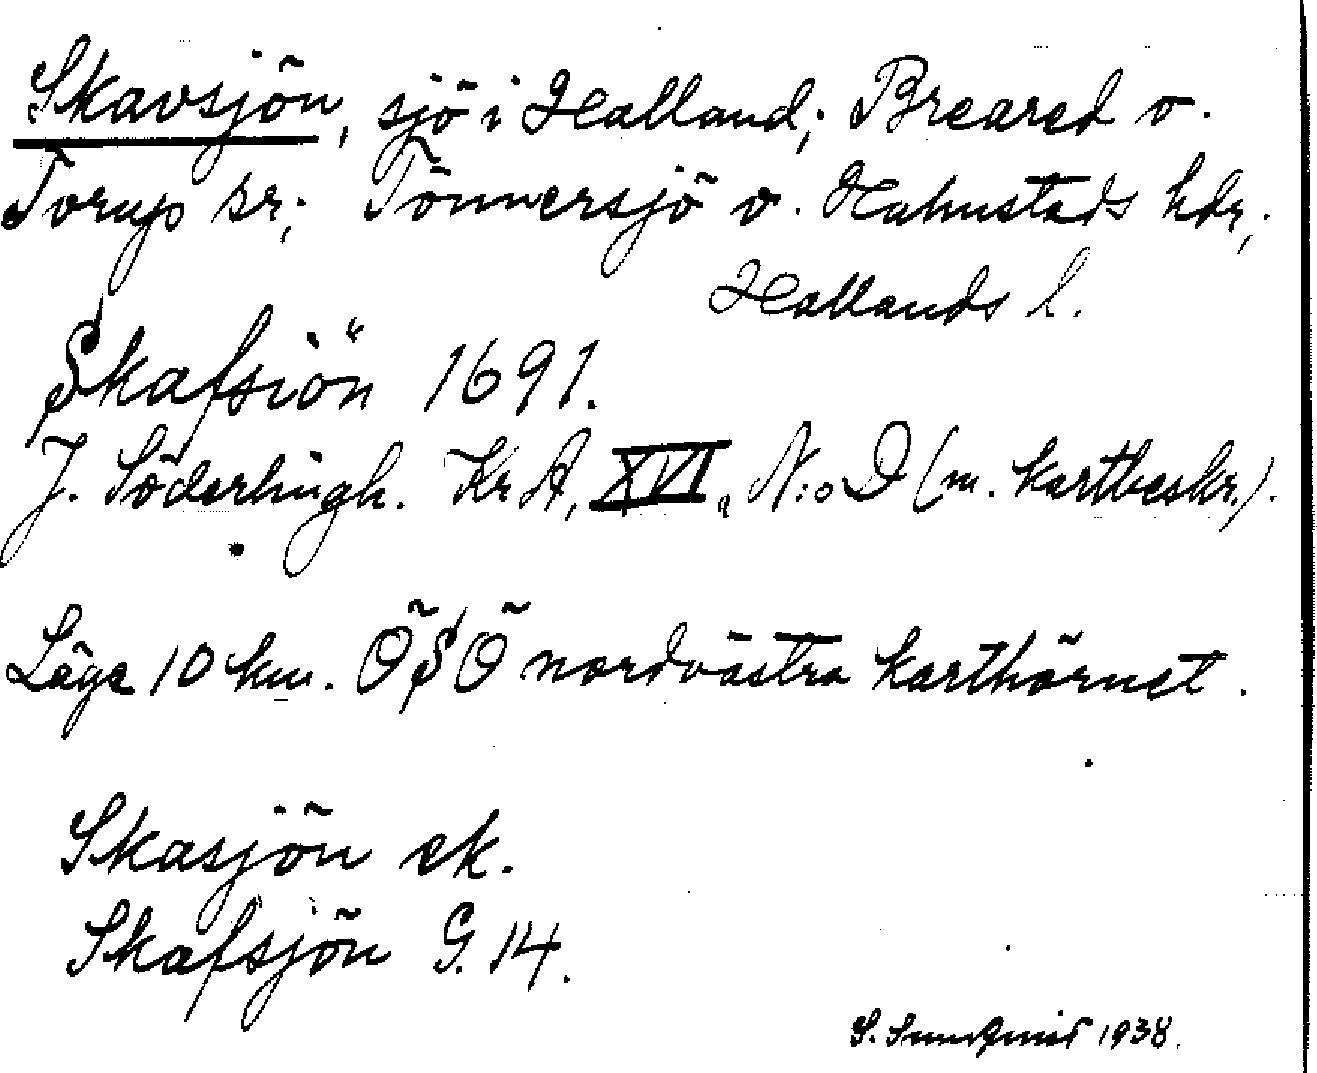 Skavsjön, sjö i Halland; Breared o.
Torup sr; Tönnersjö o. Halmstads hdr,
Hallands l.
Skafsiön 1691.
J. Söderlingh. Kr A, XVI, N:o D (m. kartbeskr.).
Läge 10 km. ÖSÖ nordvästra karthörnet.
Skasjön ek.
Skafsjön G. 14.
S. Sundqvist 1938.